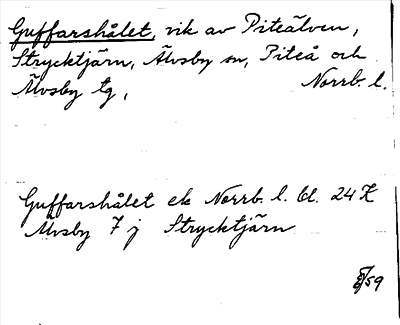 Guffarshålet, vik av Piteälven,
Strycktjärn, Älvsby sn, Piteå och
Älvsby tg, Norrb. l.
Guffarshålet ek Norrb. l. bl. 24 K
Älvsby 7 j Strycktjärn
/59